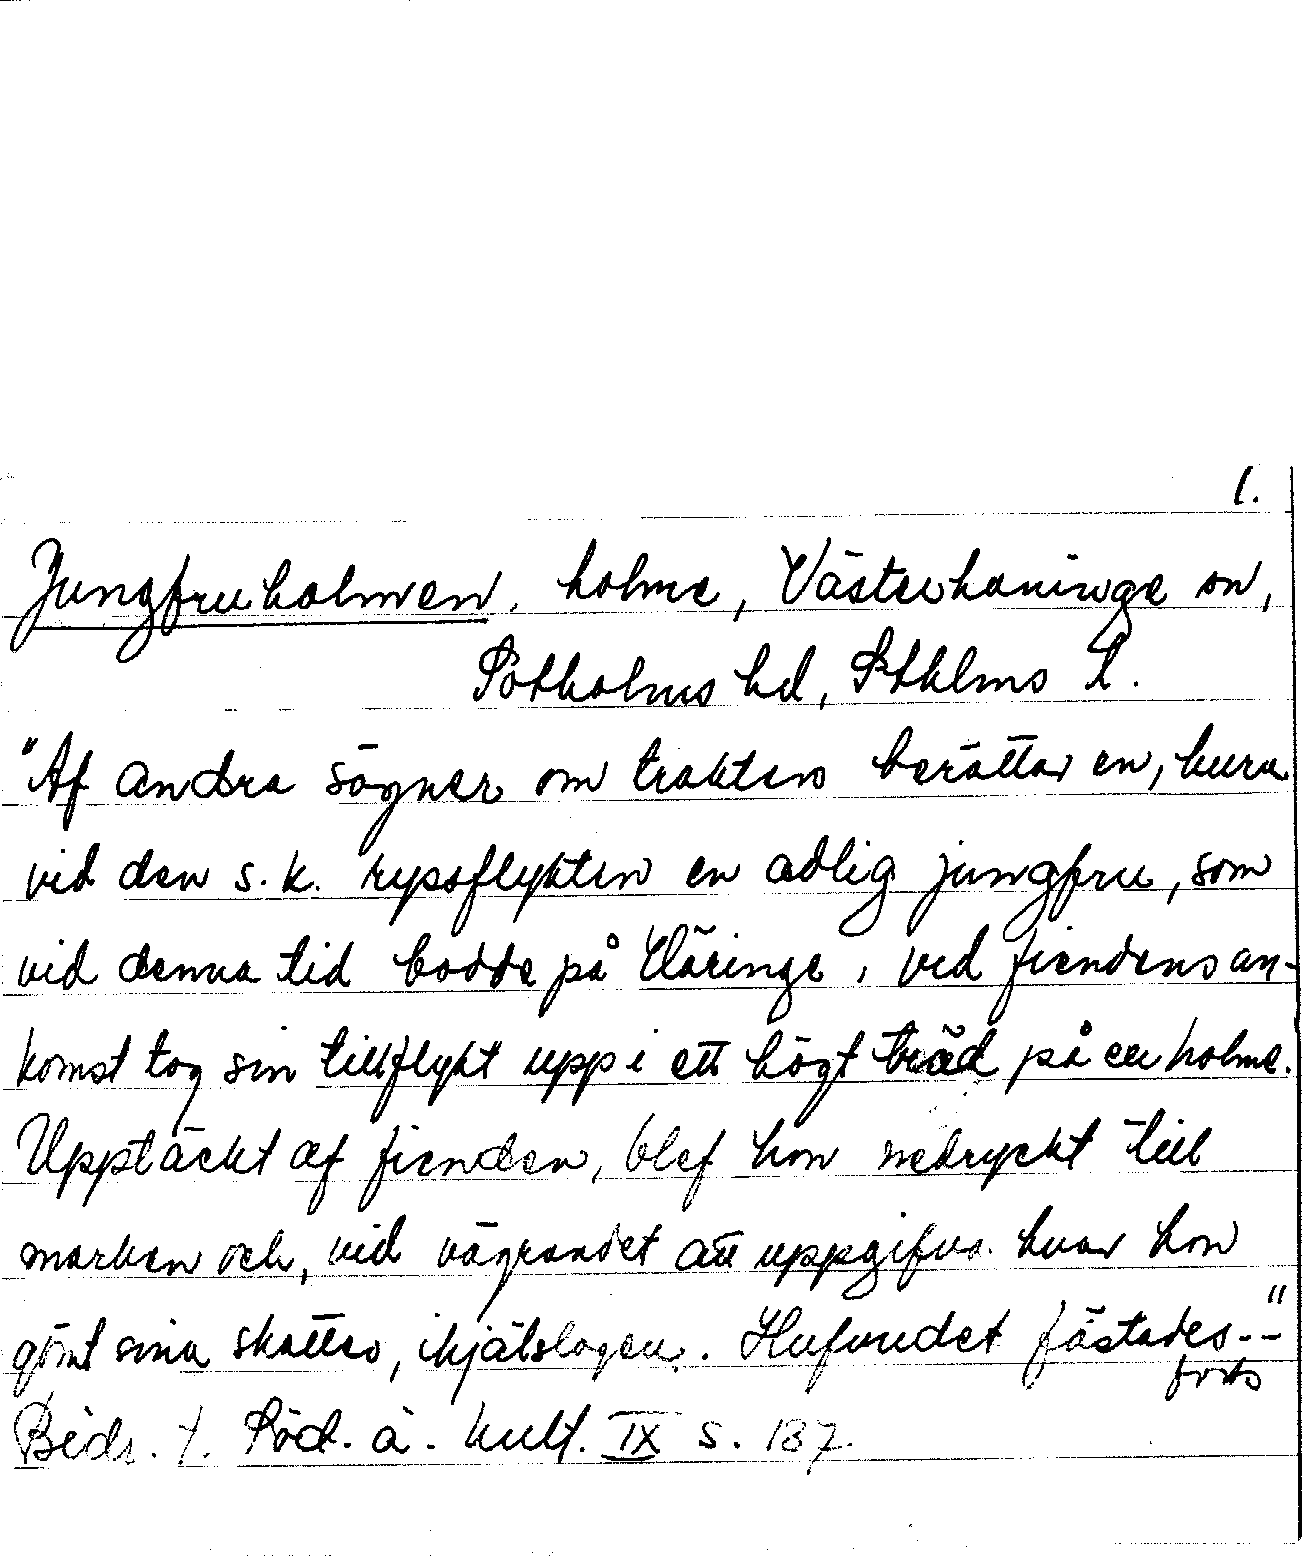 1.
Jungfruholmen, holme, Västerhaninge sn,
Sotholms hd, Sthlms l.
"Af andra sägner om trakten berättar en, huru
vid den s.k. ryssflykten en adlig jungfru, som
vid denna tid bodde på Häringe, vid fiendens an-
komst tog sin tillflykt upp i ett högt träd på en holme.
Upptäckt af fienden, blef hon nedryckt till
marken och, vid vägrandet att uppgifva hvar hon
gömt sina skatter, ihjälslagen. Hufvudet fästades--"
forts
Bidr. t. Söd. ä. kult. IX s. 137.